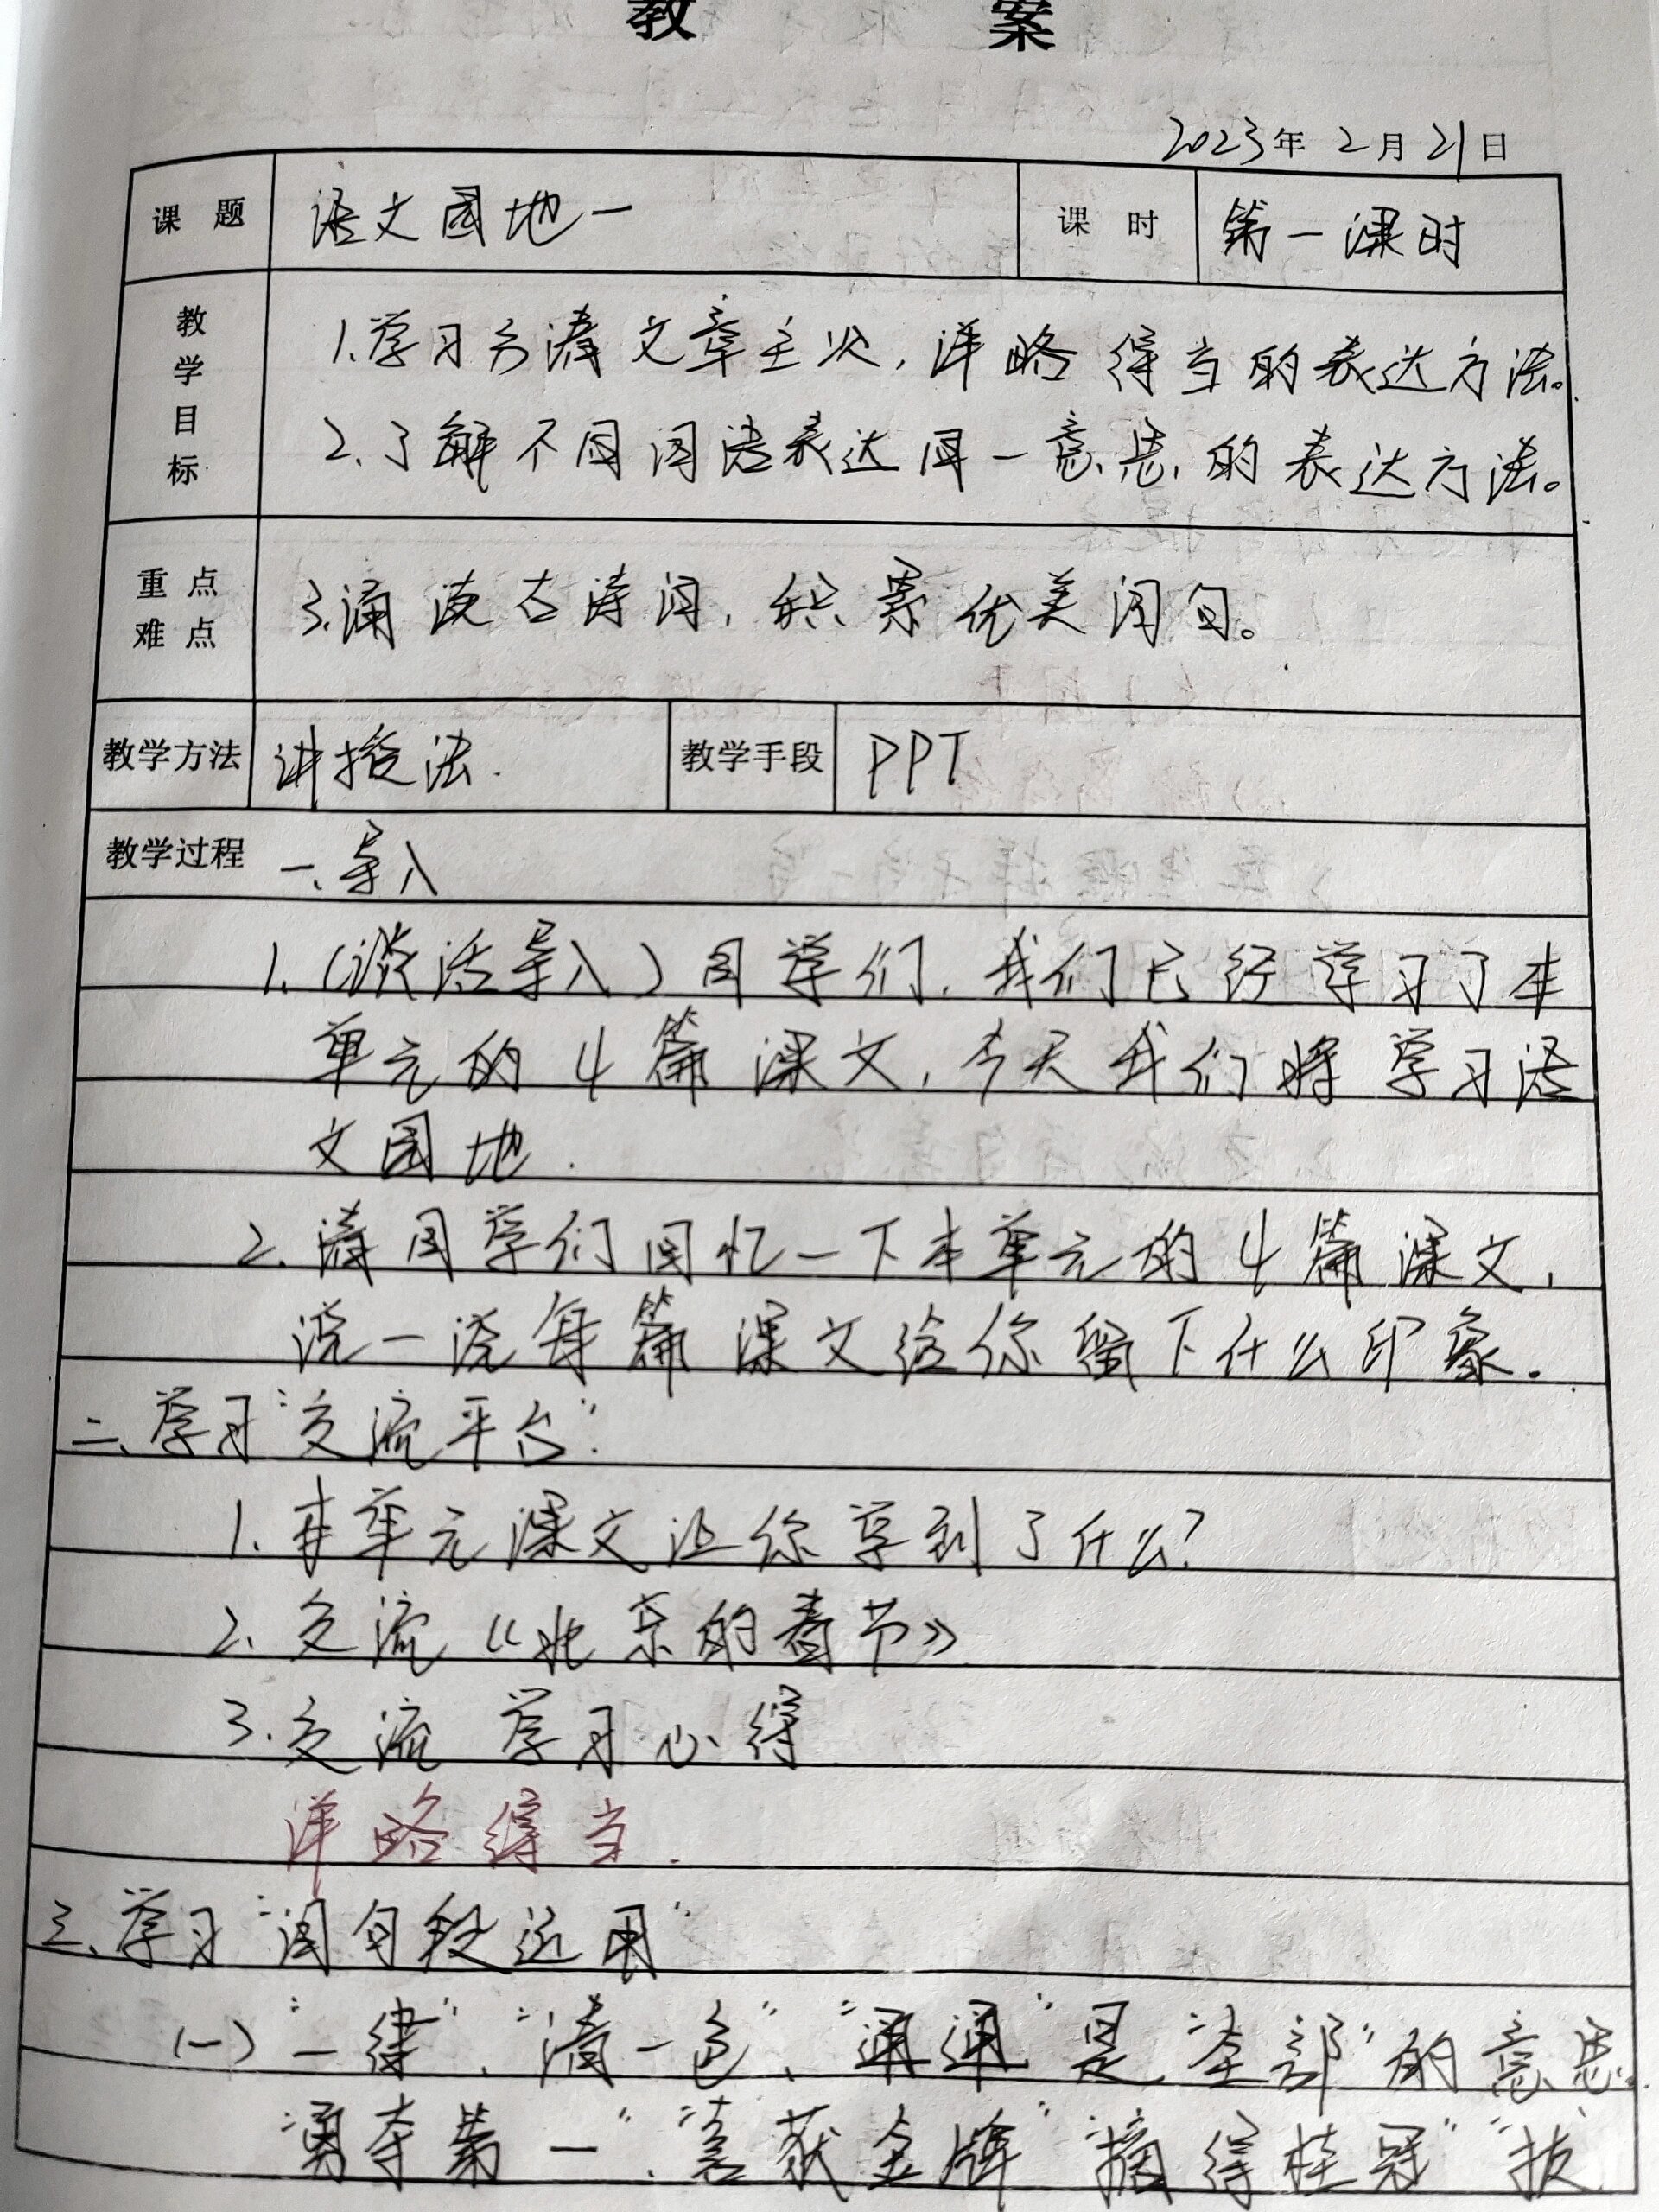 教 案
2023年 2月 21日
课 题 语文园地一 课 时 第一课时
教学目标 1.学习分清文章主次,详略得当的表达方法。
2.了解不同词语表达同一意思的表达方法。
重点难点 3.诵读古诗词,积累优美词句。
教学方法 讲授法. 教学手段 PPT
教学过程 一、导入
1.(谈话导入)同学们,我们已经学习了本
单元的4篇课文,今天我们将学习语
文园地.
2.请同学们回忆一下本单元的4篇课文,
说一说每篇课文给你留下什么印象。
二、学习“交流平台”.
1.本单元课文让你学到了什么?
2.交流《北京的春节》
3.交流 学习心得
详略得当.
三、学习“词句段运用”
(一)“一律”、“清一色”、“通通”是“全部”的意思。
“勇夺第一”、“喜获金牌”“摘得桂冠”“拔